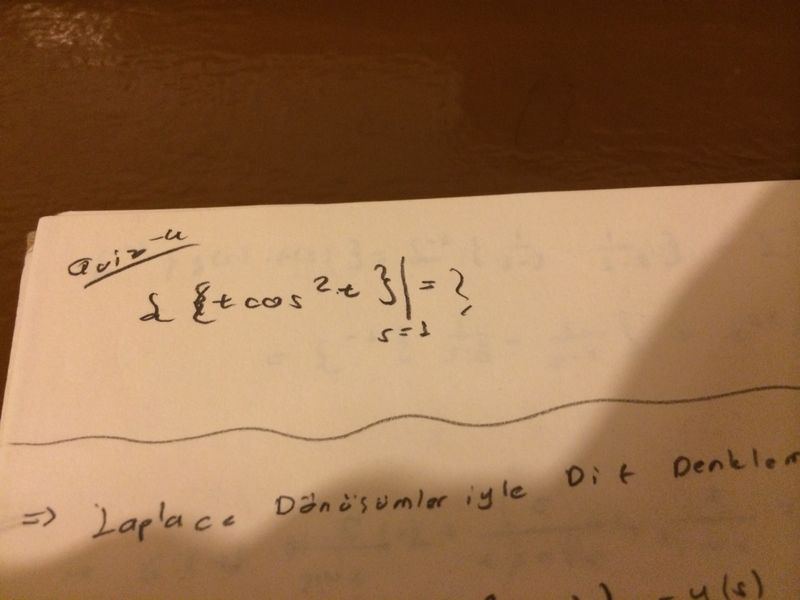 Quiz-4
L {t cos² t}|ₛ₌₁ = ?
=> Laplace Dönüşümleriyle Dif Denklem
= y(s)